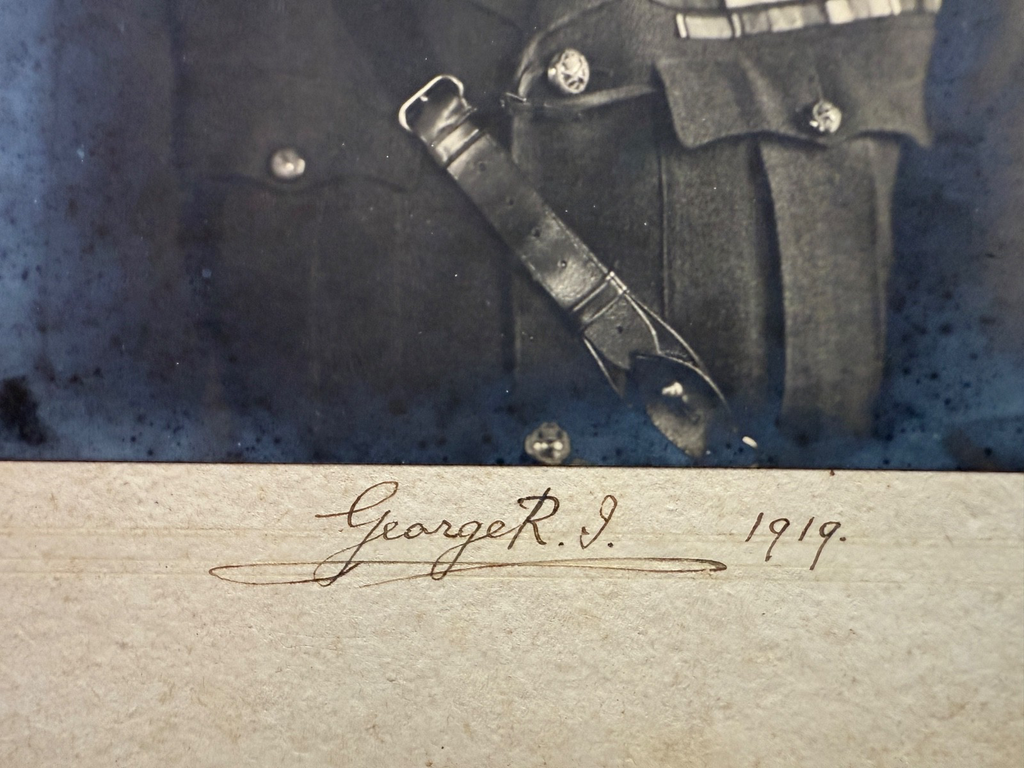 George R. I. 1919.